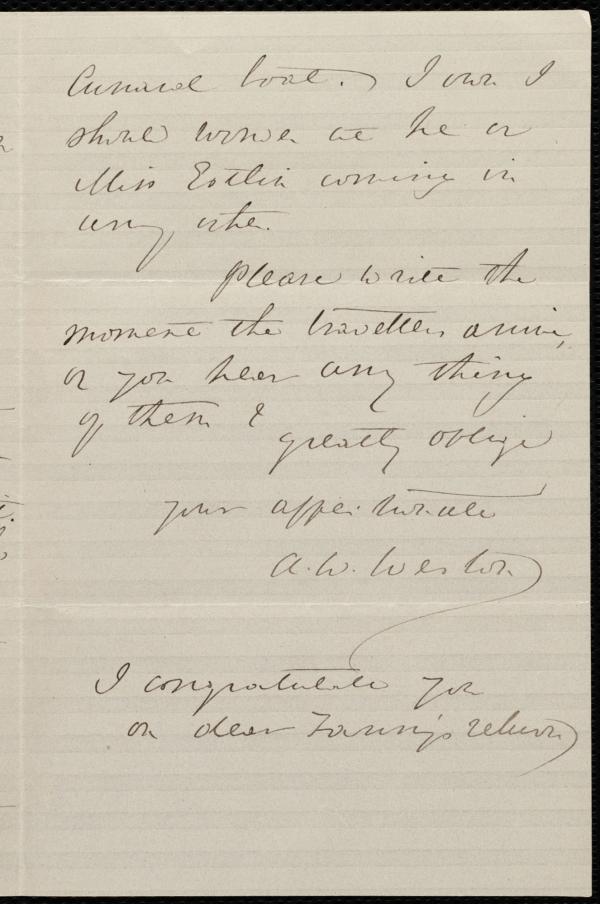 Cunard boat. I own I
should wonder at he or
Miss Estlin coming in
any other.
Please write the
moment the travellers arrive,
or you hear any thing
of them &
greatly oblige
your affectionate
A. W. Weston
I congratulate you
on dear Fanny's return